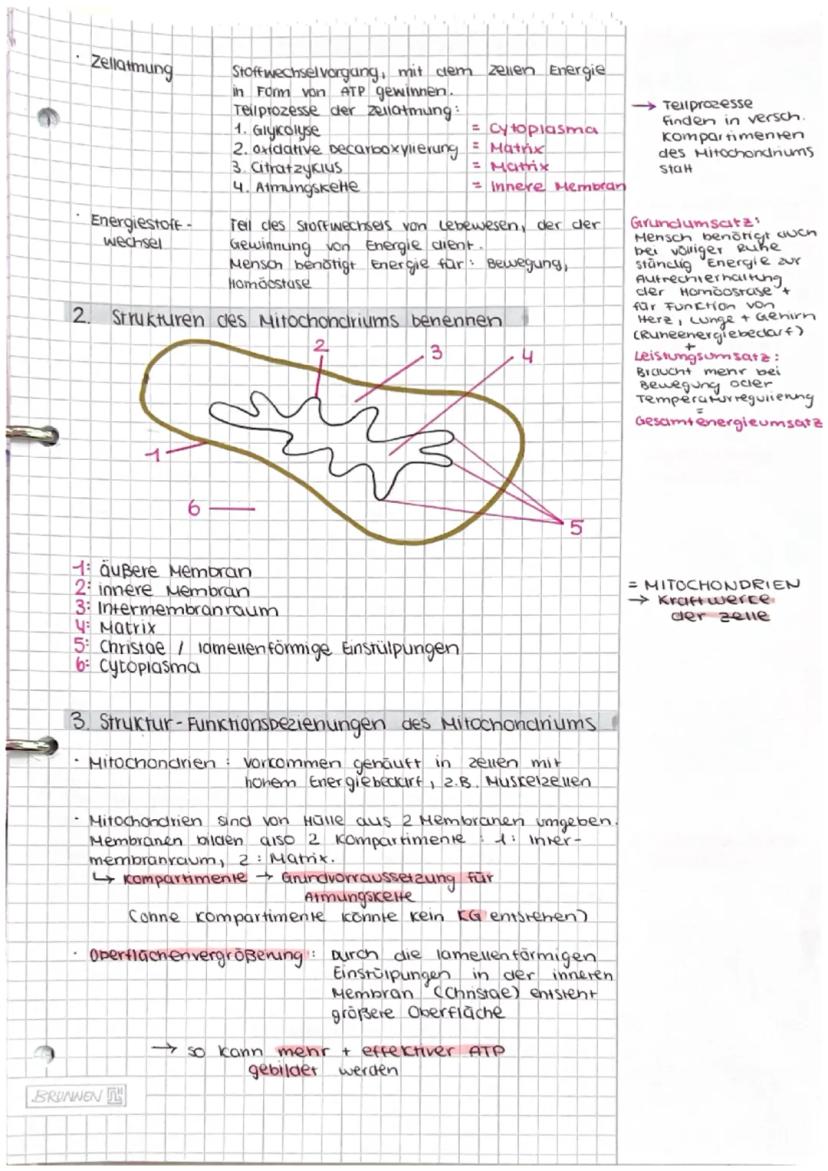 · Zellatmung Stoffwechselvorgang, mit dem Zellen Energie
in Form von ATP gewinnen.
Teilprozesse der Zellatmung:
1. Glykolyse = Cytoplasma
2. oxidative Decarboxylierung = Matrix
3. Citratzyklus = Matrix
4. Atmungskette = Innere Membran
→ Teilprozesse
finden in versch.
Kompartimenten
des Mitochondriums
statt
· Energiestoff- Teil des Stoffwechsels von Lebewesen, der der
wechsel Gewinnung von Energie dient.
Mensch benötigt Energie für: Bewegung,
Homöostase
Grundumsatz:
Mensch benötigt auch
bei völliger Ruhe
ständig Energie zur
Aufrechterhaltung
der Homöostase +
für Function von
Herz, Lunge + Gehirn
(Ruheenergiebedarf)
+
Leistungsumsatz:
Braucht mehr bei
Bewegung oder
Temperaturregulierung
=
Gesamtenergieumsatz
2. Strukturen des Mitochondriums benennen
2
3
4
1
6
5
1: äußere Membran
2: innere Membran
3: Intermembranraum
4: Matrix
5: Christae / lamellenförmige Einstülpungen
6: Cytoplasma
= MITOCHONDRIEN
→ Kraftwerke
der Zelle
3. Struktur-Funktionsbeziehungen des Mitochondriums
· Mitochondrien: Vorkommen gehäuft in Zellen mit
hohem Energiebedarf, z.B. Muskelzellen
· Mitochondrien sind von Hülle aus 2 Membranen umgeben.
Membranen bilden also 2 Kompartimente: 1: Inter-
membranraum, 2: Matrix.
↳ Kompartimente → Grundvorraussetzung für
Atmungskette
(ohne Kompartimente könnte kein KG entstehen)
· Oberflächenvergrößerung: Durch die lamellenförmigen
Einstülpungen in der inneren
Membran (Christae) entsteht
größere Oberfläche
→ so kann mehr + effektiver ATP
gebildet werden
BRUNNEN